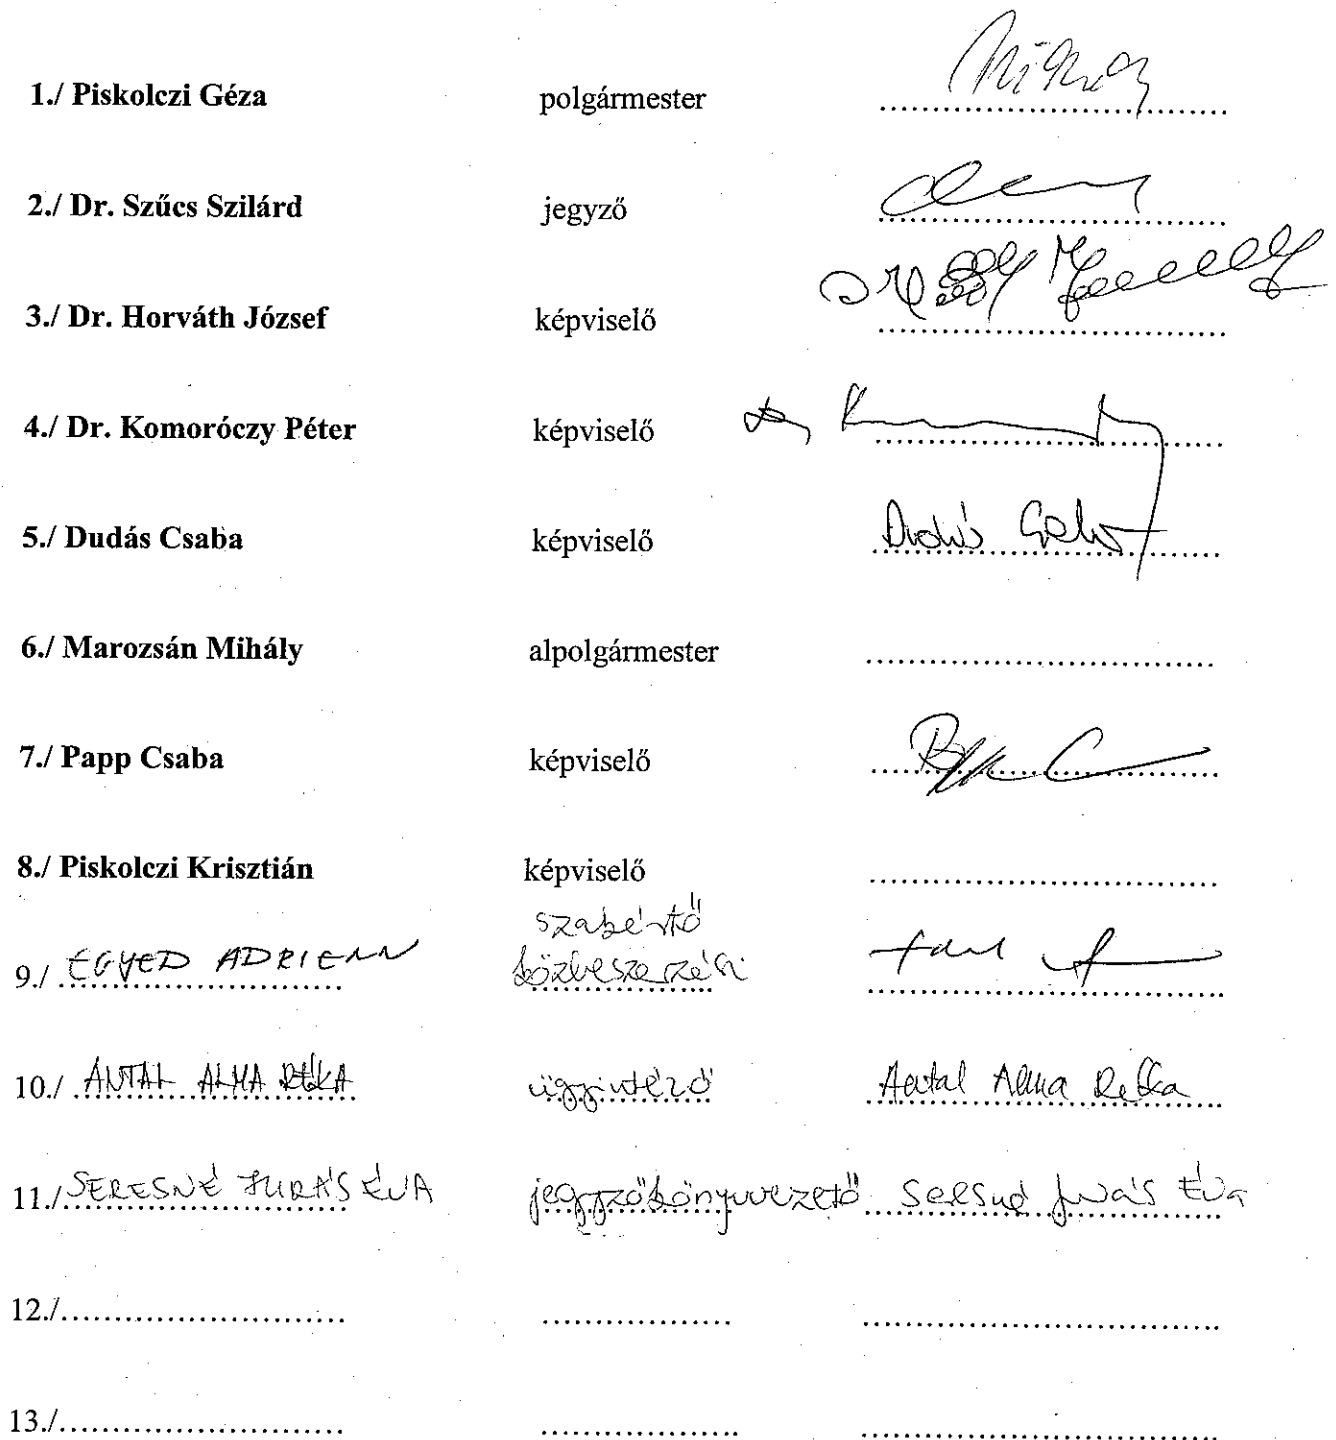 1./ Piskolczi Géza polgármester ..............................
2./ Dr. Szűcs Szilárd jegyző ..............................
3./ Dr. Horváth József képviselő ..............................
4./ Dr. Komoróczy Péter képviselő ..............................
5./ Dudás Csaba képviselő ..............................
6./ Marozsán Mihály alpolgármester ..............................
7./ Papp Csaba képviselő ..............................
8./ Piskolczi Krisztián képviselő ..............................
szakértő
9./ EGYED ADRIENN közbeszerzési
10./ ANTAL ALMA RÉKA ügyintéző Antal Alma Réka
11./ SERESNÉ JURÁS ÉVA jegyzőkönyvvezető Seresné Jurás Éva
12./.......................... .................. ..............................
13./.......................... .................. ..............................